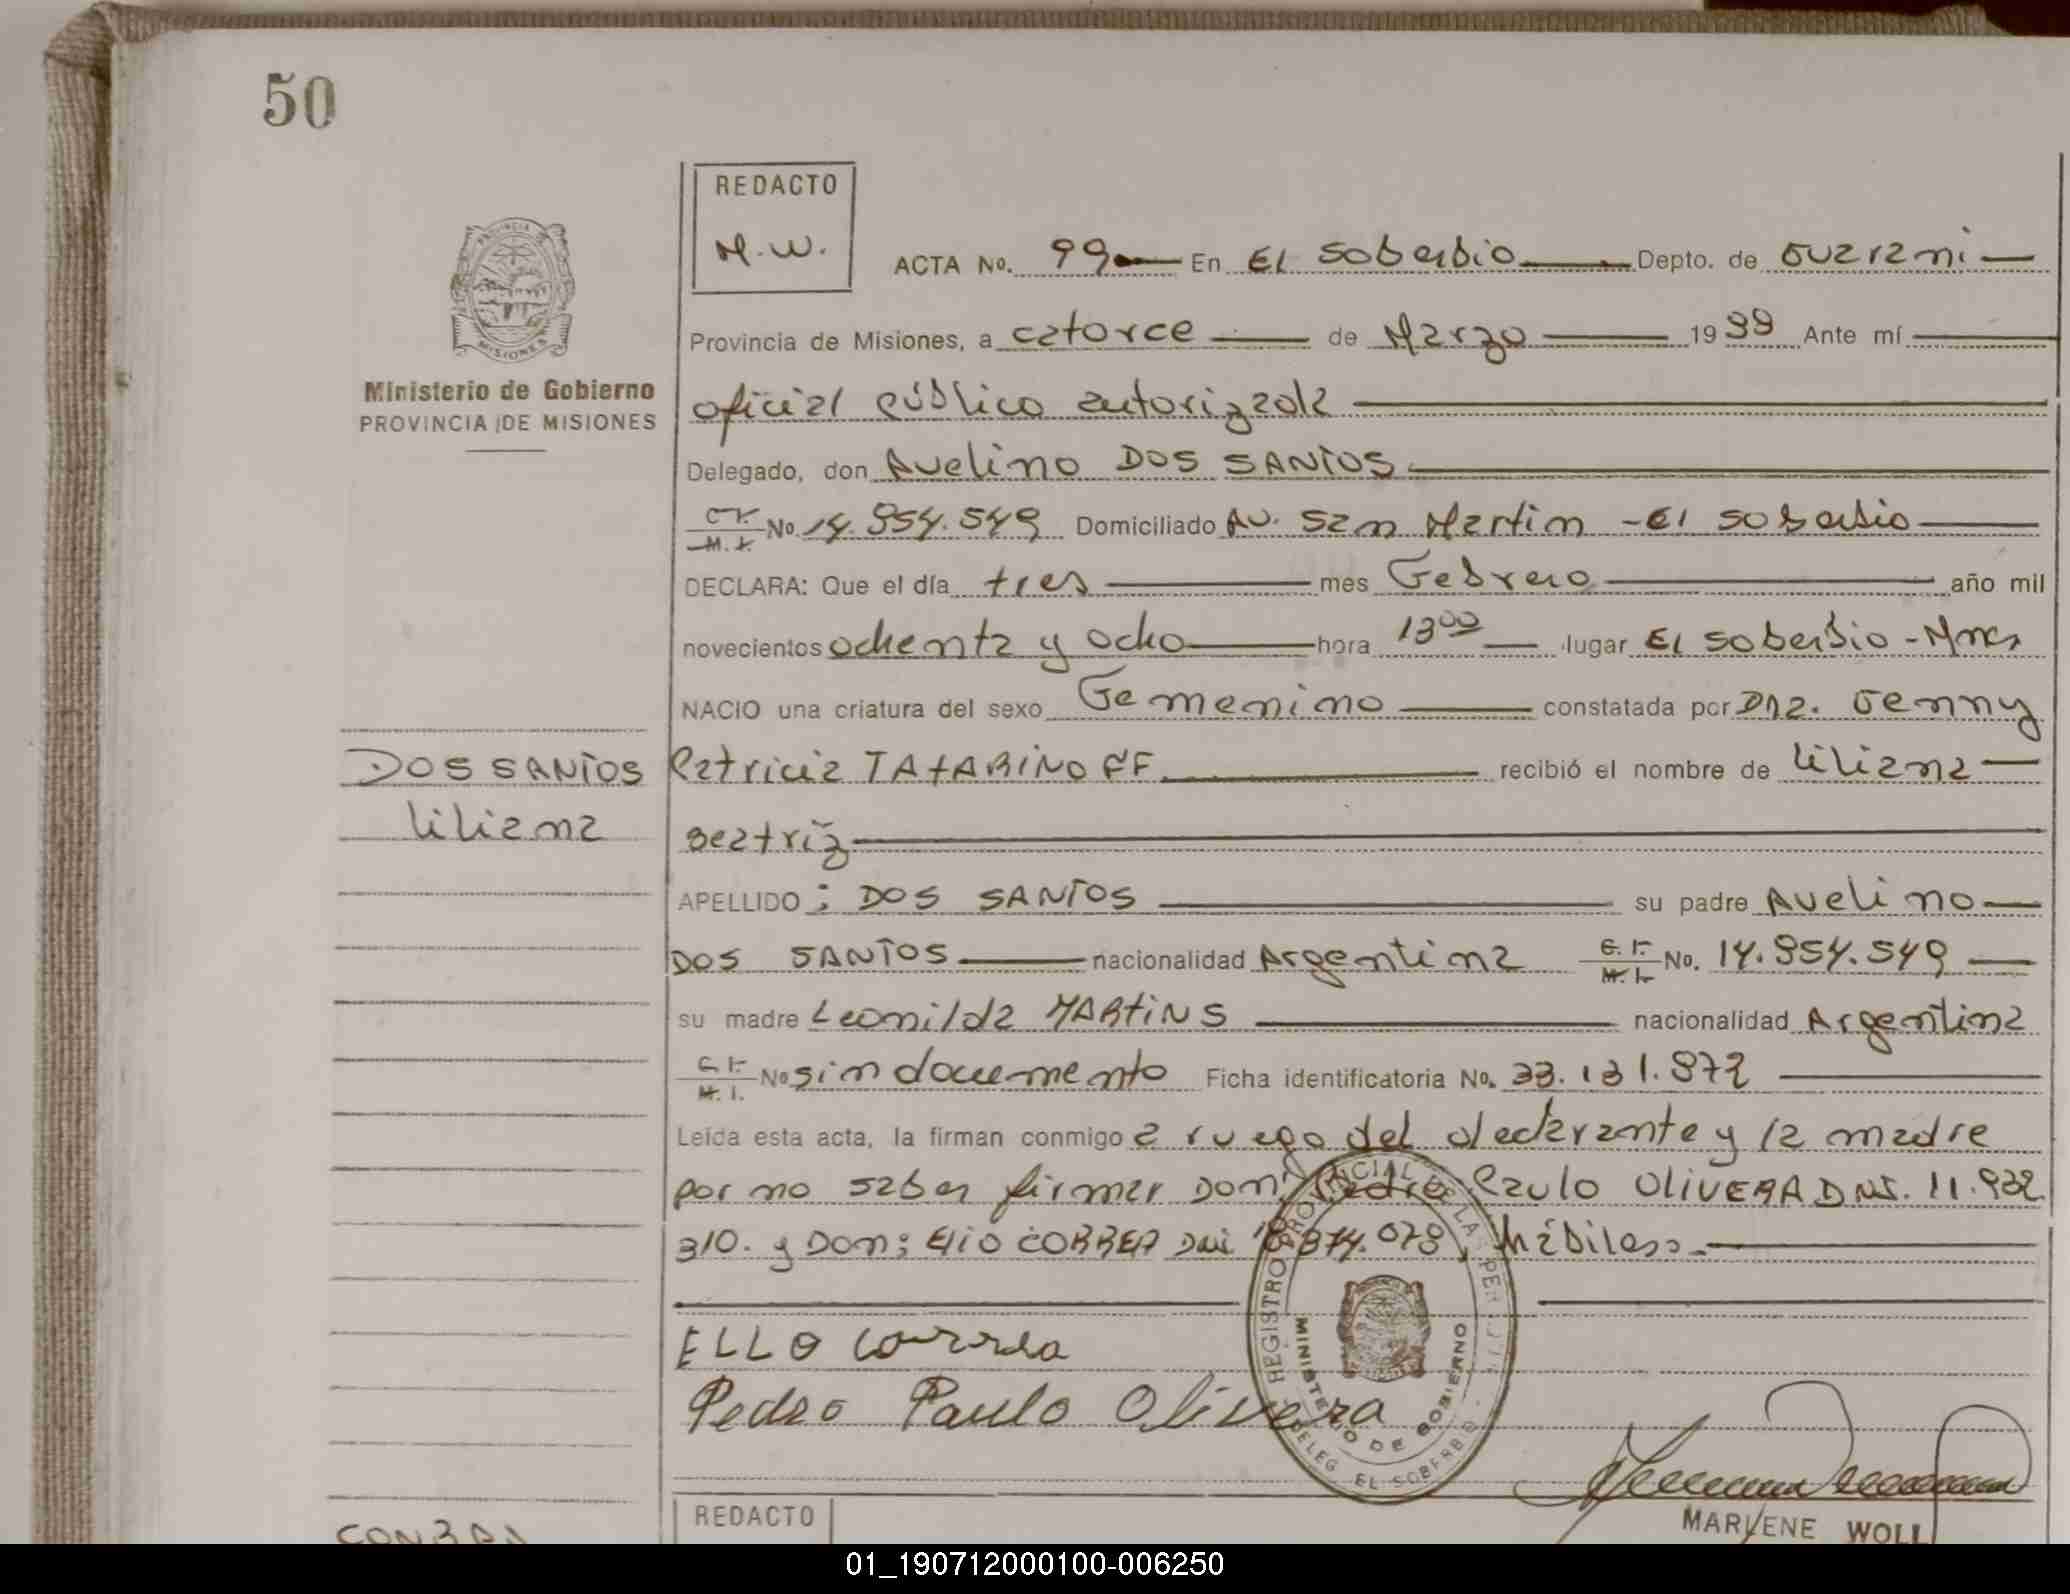 50
REDACTO
M.W.
ACTA No. 99 En El Soberbio Depto. de Guarani
Provincia de Misiones, a catorce de Marzo 19 88 Ante mí
oficial público autorizada
Ministerio de Gobierno
PROVINCIA DE MISIONES
Delegado, don Avelino DOS SANTOS
No. 14.954.549 Domiciliado Av. San Martin - El Soberbio
DECLARA: Que el día tres mes Febrero año mil
novecientos ochenta y ocho hora 13 00 lugar El Soberbio - Mnes
NACIO una criatura del sexo Femenino constatada por Dra. Genny
DOS SANTOS
Liliana
Patricia TATARINOFF recibió el nombre de Liliana
Beatriz
APELLIDO : DOS SANTOS su padre Avelino
DOS SANTOS nacionalidad Argentina C.I. M.I. No. 14.954.549
su madre Leonilda MARTINS nacionalidad Argentina
C.I. M.I. No sin documento Ficha identificatoria No. 33.131.972
Leída esta acta, la firman conmigo a ruego del declarante y la madre
por no saber firmar Don: Pedro Paulo OLIVERA DNI. 11.932.
310. y Don: Elio CORREA DNI 874.078, hábiles.
ELLO Correa
Pedro Paulo Olivera
REGISTRO PROVINCIAL DE LAS PER
MINISTERIO DE GOBIERNO
DELEG. EL SOBERBIO
MARLENE WOLL
REDACTO
01_190712000100-006250